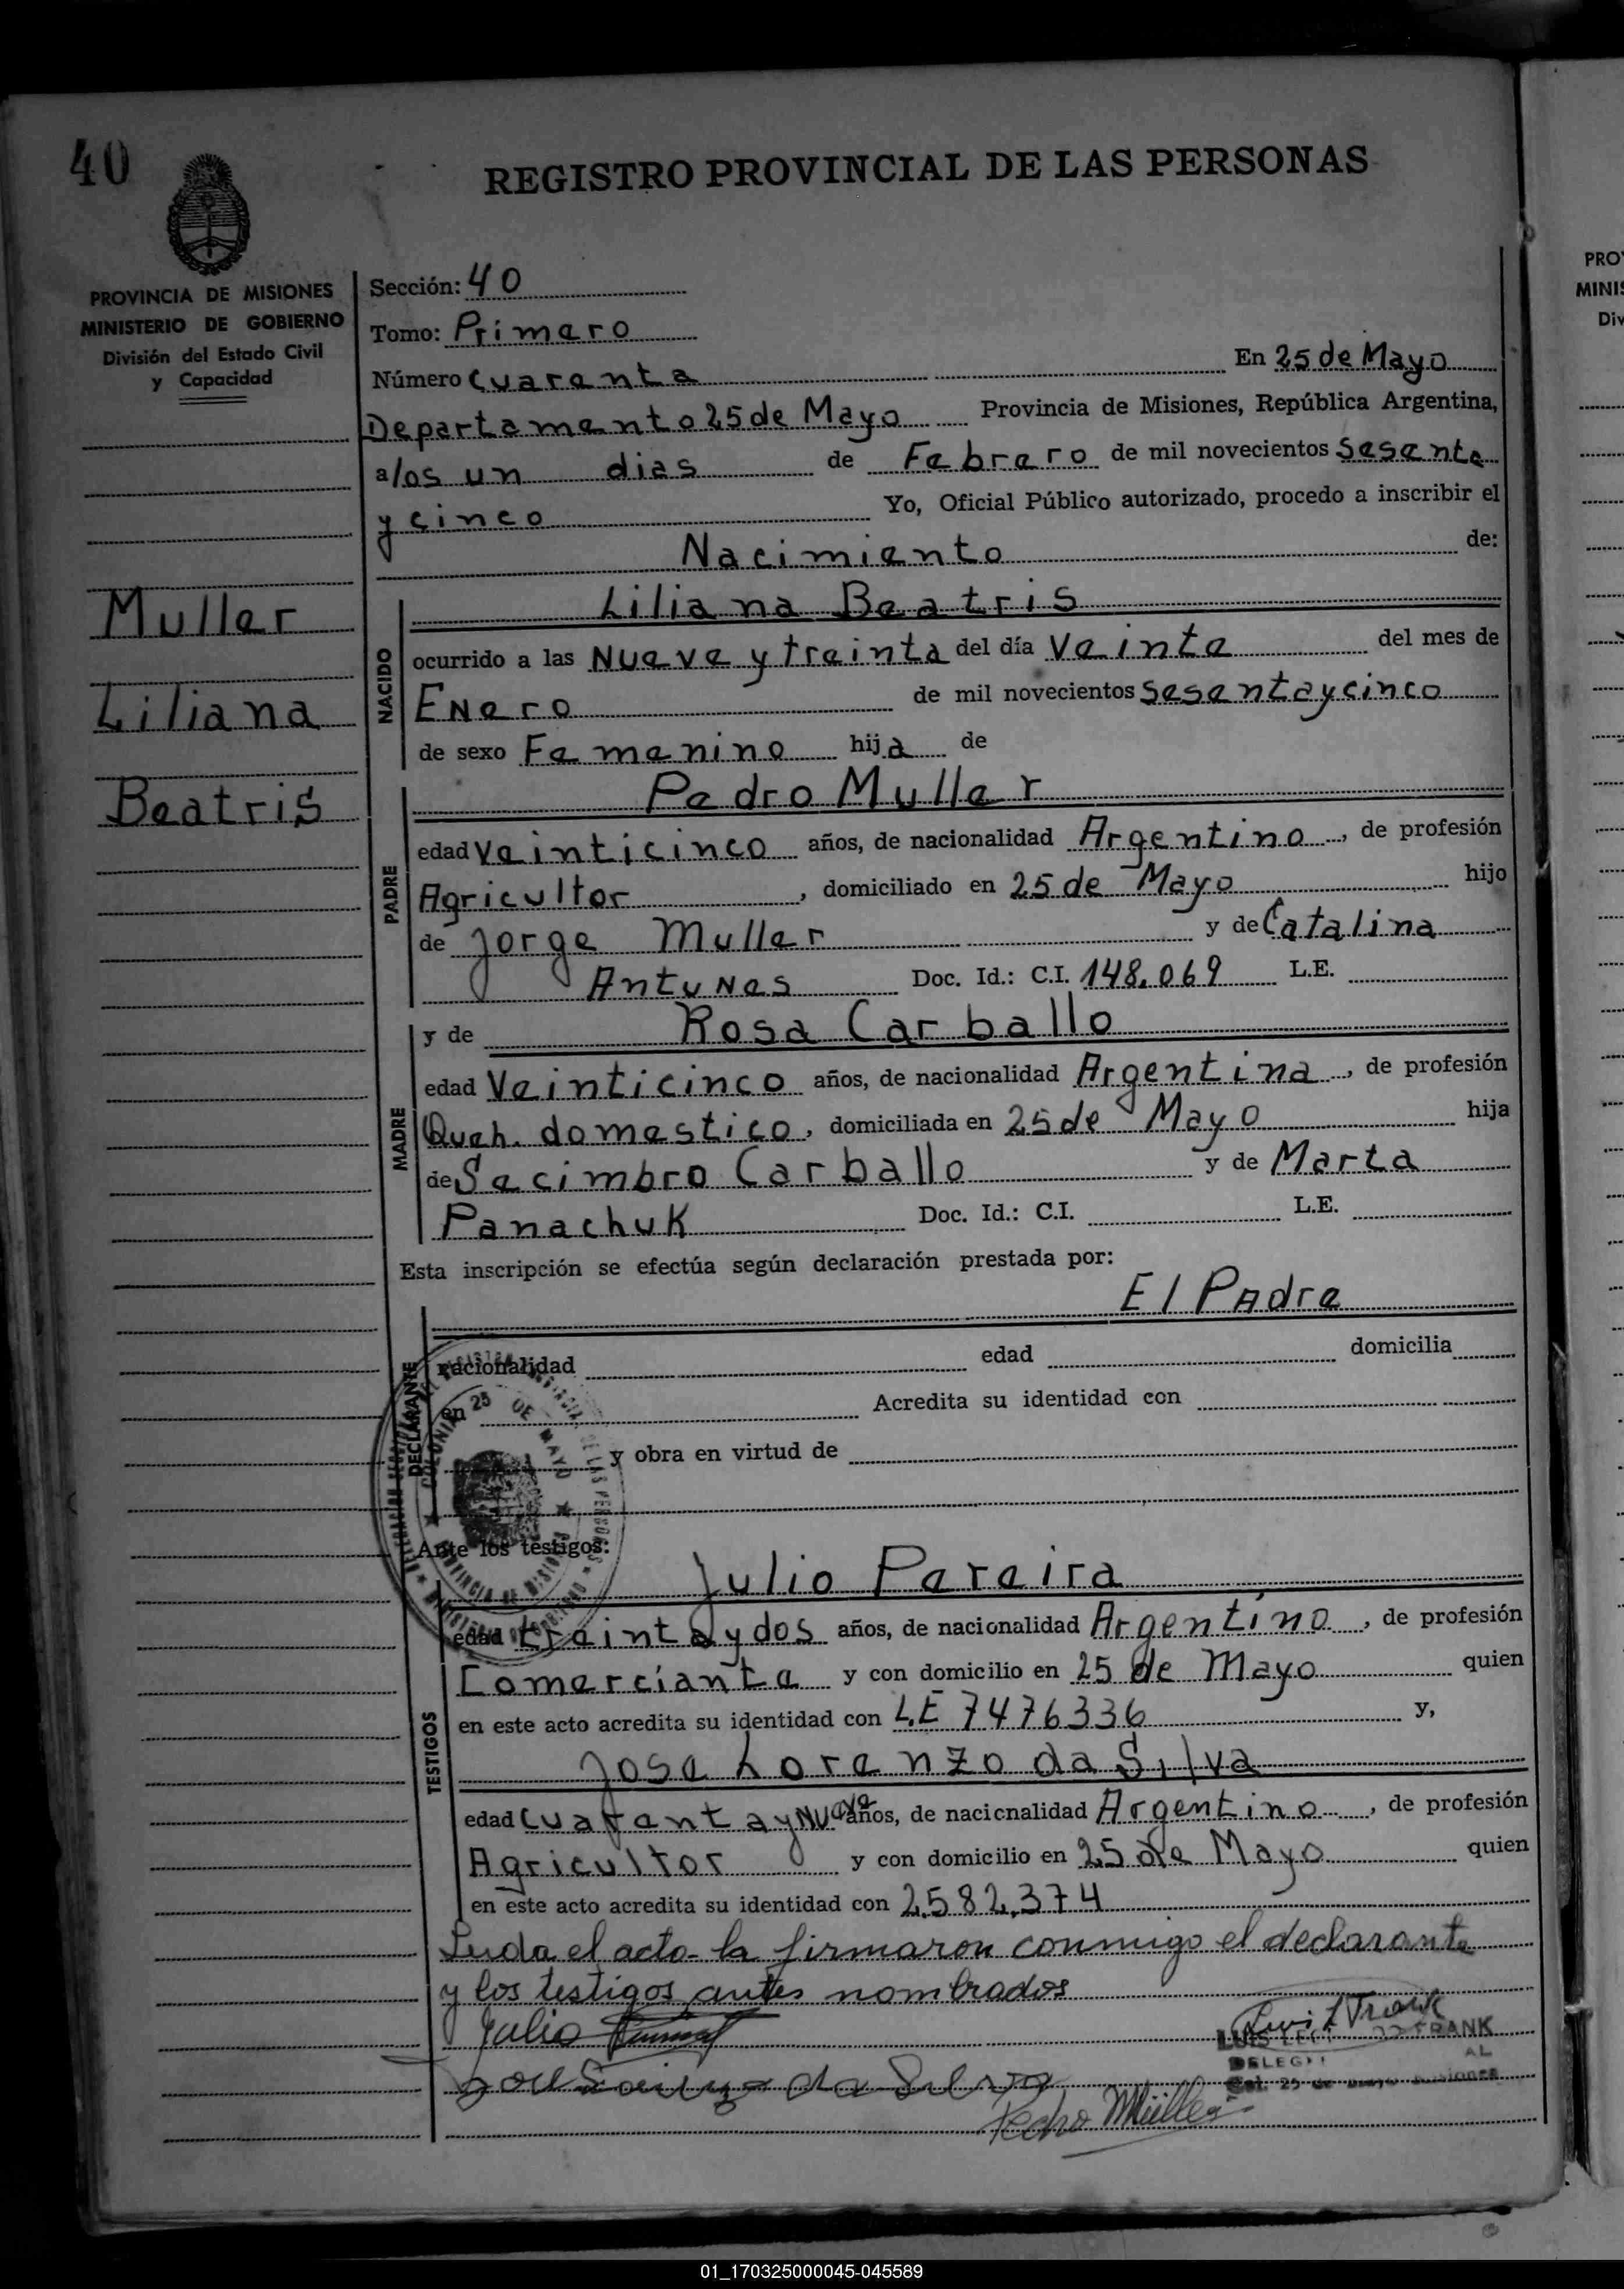 40
REGISTRO PROVINCIAL DE LAS PERSONAS
PROVINCIA DE MISIONES
MINISTERIO DE GOBIERNO
División del Estado Civil
y Capacidad
Muller
Liliana
Beatris
Sección: 40
Tomo: Primero
Número Cuarenta En 25 de Mayo
Departamento 25 de Mayo Provincia de Misiones, República Argentina,
a/os un dias de Febrero de mil novecientos Sesenta
y cinco Yo, Oficial Público autorizado, procedo a inscribir el
Nacimiento de:
NACIDO
Liliana Beatris
ocurrido a las Nueve y treinta del día Veinte del mes de
Enero de mil novecientos Sesenta y cinco
de sexo Femenino hija de
PADRE
Pedro Muller
edad Veinticinco años, de nacionalidad Argentino, de profesión
Agricultor, domiciliado en 25 de Mayo hijo
de Jorge Muller y de Catalina
Antunes Doc. Id.: C.I. 148.069 L.E.
MADRE
y de Rosa Carballo
edad Veinticinco años, de nacionalidad Argentina, de profesión
Queh. domestico, domiciliada en 25 de Mayo hija
de Secimbro Carballo y de Marta
Panachuk Doc. Id.: C.I. L.E.
Esta inscripción se efectúa según declaración prestada por:
El Padre
DECLARANTE
nacionalidad edad domicilia
en Acredita su identidad con
y obra en virtud de
COLONIA 25 DE MAYO
Ante los testigos:
TESTIGOS
Julio Pereira
edad treinta y dos años, de nacionalidad Argentino, de profesión
Comerciante y con domicilio en 25 de Mayo quien
en este acto acredita su identidad con L.E 7476336 y,
Jose Lorenzo da Silva
edad Cuarenta y Nueve años, de nacicnalidad Argentino, de profesión
Agricultor y con domicilio en 25 de Mayo quien
en este acto acredita su identidad con 2.582.374
Leida el acta la firmaron conmigo el declarante
y los testigos antes nombrados
Julio
da Silva
LUIS FRANK
Pedro Müller
PRO
MINIS
Div
01_170325000045-045589